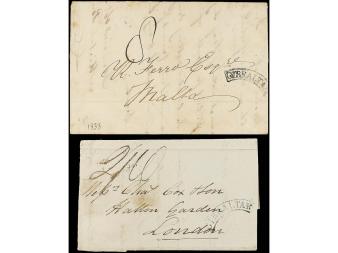 8
W. Ferro Esqre
Malta
GIBRALTAR
1833
2/10
Messrs Chas Cox & Son
Hatton Garden
London
GIBRALTAR